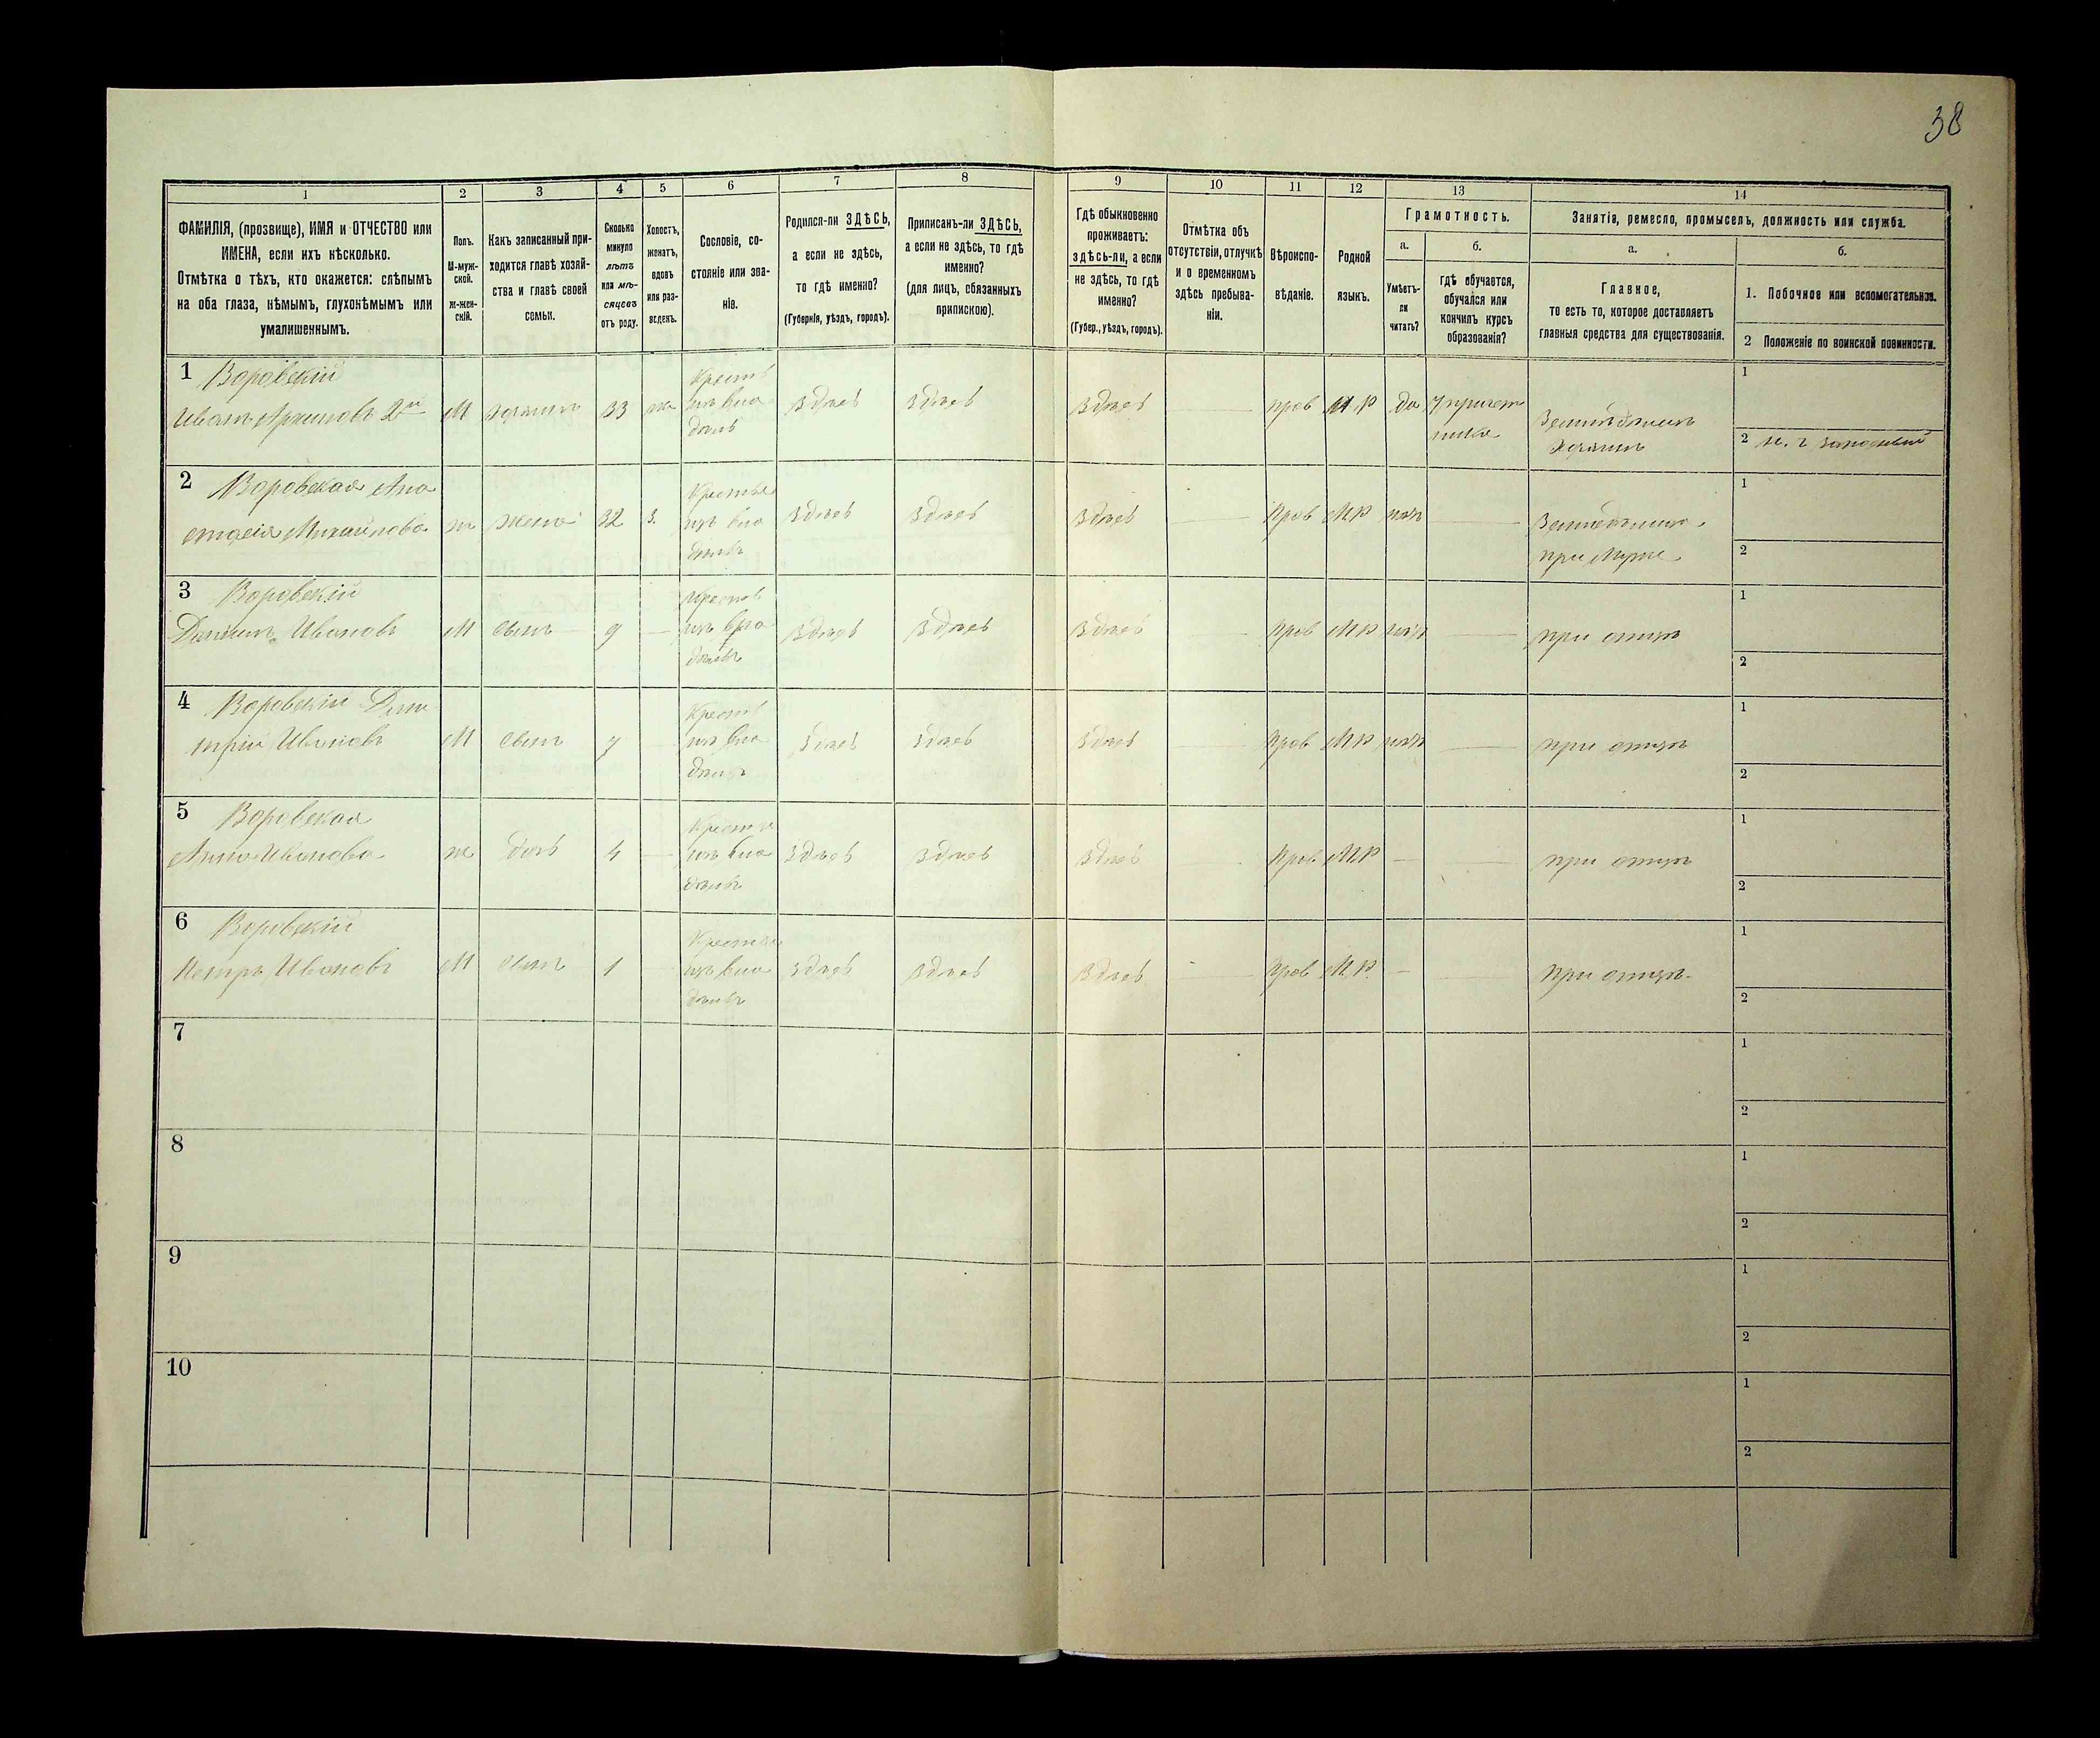 38
1 2 3 4 5 6 7 8 9 10 11 12 13 14
ФАМИЛІЯ, (прозвище), ИМЯ и ОТЧЕСТВО или
ИМЕНА, если ихъ нѣсколько.
Отмѣтка о тѣхъ, кто окажется: слѣпымъ
на оба глаза, нѣмымъ, глухонѣмымъ или
умалишеннымъ.
Полъ.
М-муж-
ской.
ж-жен-
скій.
Какъ записанный при-
ходится главѣ хозяй-
ства и главѣ своей
семьи.
Сколько
минуло
лѣтъ
или мѣ-
сяцевъ
отъ роду.
Холостъ,
женатъ,
вдовъ
или раз-
веденъ.
Сословіе, со-
стояніе или зва-
ніе.
Родился-ли ЗДѢСЬ,
а если не здѣсь,
то гдѣ именно?
(Губернія, уѣздъ, городъ).
Приписанъ-ли ЗДѢСЬ,
а если не здѣсь, то гдѣ
именно?
(для лицъ, обязанныхъ
припискою).
Гдѣ обыкновенно
проживаетъ:
здѣсь-ли, а если
не здѣсь, то гдѣ
именно?
(Губер., уѣздъ, городъ).
Отмѣтка объ
отсутствіи, отлучкѣ
и о временномъ
здѣсь пребыва-
ніи.
Вѣроиспо-
вѣданіе.
Родной
языкъ.
Грамотность.
а.
Умѣетъ-
ли
читать?
б.
гдѣ обучается,
обучался или
кончилъ курсъ
образованія?
Занятія, ремесло, промыселъ, должность или служба.
а.
Главное,
то есть то, которое доставляетъ
главныя средства для существованія.
б.
1. Побочное или вспомогательное.
2 Положеніе по воинской повинности.
1 Воровскій
Иванъ Архиповъ 2й М хозяинъ 33 ж здѣсь здѣсь здѣсь прав М Р да
Хозяинъ
1
2
2 Воровская Ана
стасія Михайлова ж жена 32 з. здѣсь здѣсь здѣсь Прав М Р нѣтъ
при мужѣ
1
2
3 Воровскій
Даніилъ Ивановъ М сынъ 9 — здѣсь здѣсь здѣсь Прав М Р нѣтъ — при отцѣ
1
2
4 Воровскій Дим
трій Ивановъ М сынъ 7 здѣсь здѣсь здѣсь Прав М Р нѣтъ — при отцѣ
1
2
5 Воровская
Анна Иванова ж дочь 4 — здѣсь здѣсь здѣсь Прав М Р — — при отцѣ
1
2
6 Воровскій
Петръ Ивановъ М сынъ 1 здѣсь здѣсь здѣсь Прав М. Р. — — при отцѣ
1
2
7
1
2
8
1
2
9
1
2
10
1
2